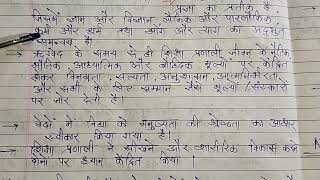 प्रज्ञा का प्रतीक है
जिसमें ज्ञान और विज्ञान, लौकिक और पारलौकिक,
कर्म और धर्म तथा भोग और त्याग का अद्भुत
समन्वय है।
→ ऋग्वेद के समय से ही शिक्षा प्रणाली जीवन के नैतिक
भौतिक, आध्यात्मिक और बौद्धिक मूल्यों पर केन्द्रित
होकर विनम्रता, सत्यता, अनुशासन, आत्मनिर्भरता
और सभी के लिए सम्मान जैसे मूल्यों / संस्कारों
पर जोर देती है।
→ वेदों में विद्या को मनुष्यता की श्रेष्ठता का आधार
स्वीकार किया गया है।
→ शिक्षा प्रणाली ने सीखने और शारीरिक विकास
दोनों पर ध्यान केन्द्रित किया।